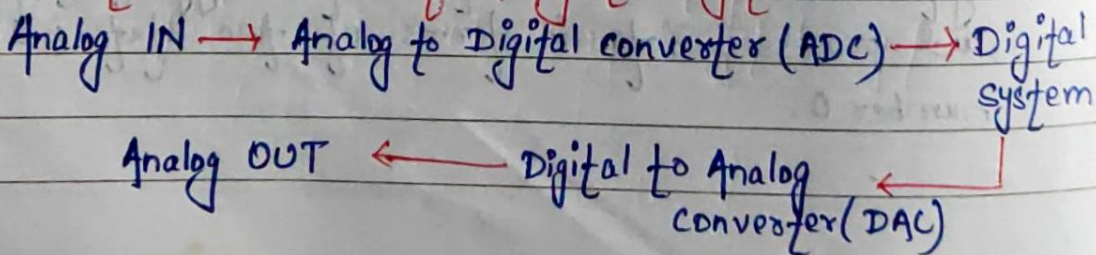 Analog IN → Analog to Digital converter (ADC) → Digital
system
Analog OUT ← Digital to Analog
converter (DAC)